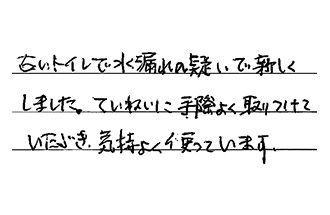 古いトイレで水漏れの疑いで新しく
しました。ていねいに手際よく取りつけて
いただき、気持よく使っています。